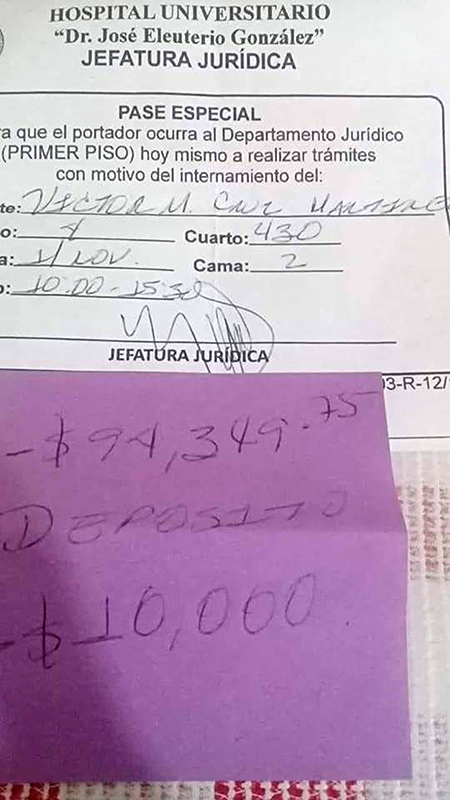 HOSPITAL UNIVERSITARIO
“Dr. José Eleuterio González”
JEFATURA JURÍDICA
PASE ESPECIAL
ra que el portador ocurra al Departamento Jurídico
(PRIMER PISO) hoy mismo a realizar trámites
con motivo del internamiento del:
te: VICTOR M. CRUZ MARTINE
o: 4 Cuarto: 430
a: 11 NOV. Cama: 2
o: 10:00 - 15:30
JEFATURA JURÍDICA
03-R-12/
- $ 94,349.75
DEPOSITO
- $ 10,000